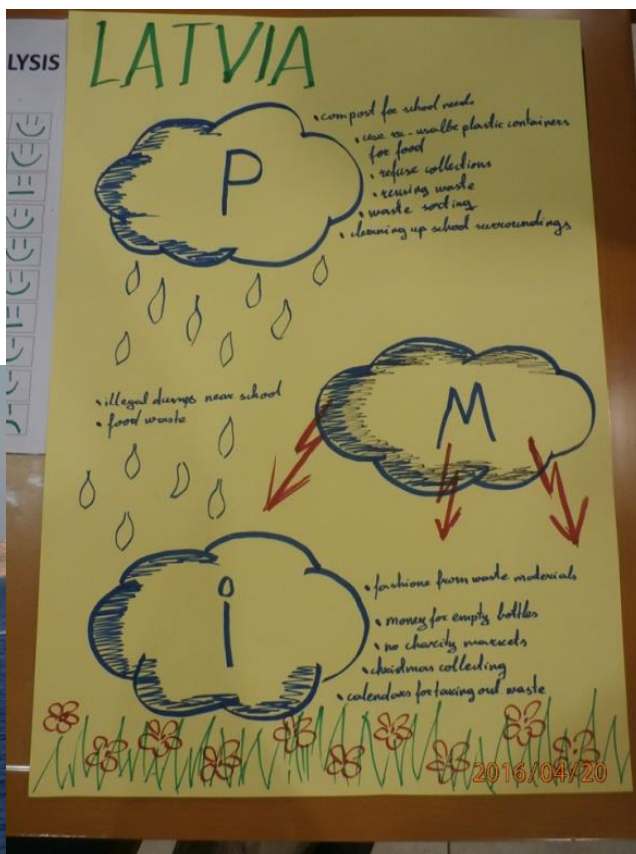 LYSIS
LATVIA
P
• compost for school needs
• use re-usalbe plastic containers
for food
• refuse collections
• reusing waste
• waste sorting
• cleaning up school surroundings
• illegal dumps near school
• food waste
M
i
• fashione from waste materials
• money for empty bottles
• no charity markets
• christmas collecting
• calendars for taking out waste
2016/04/20